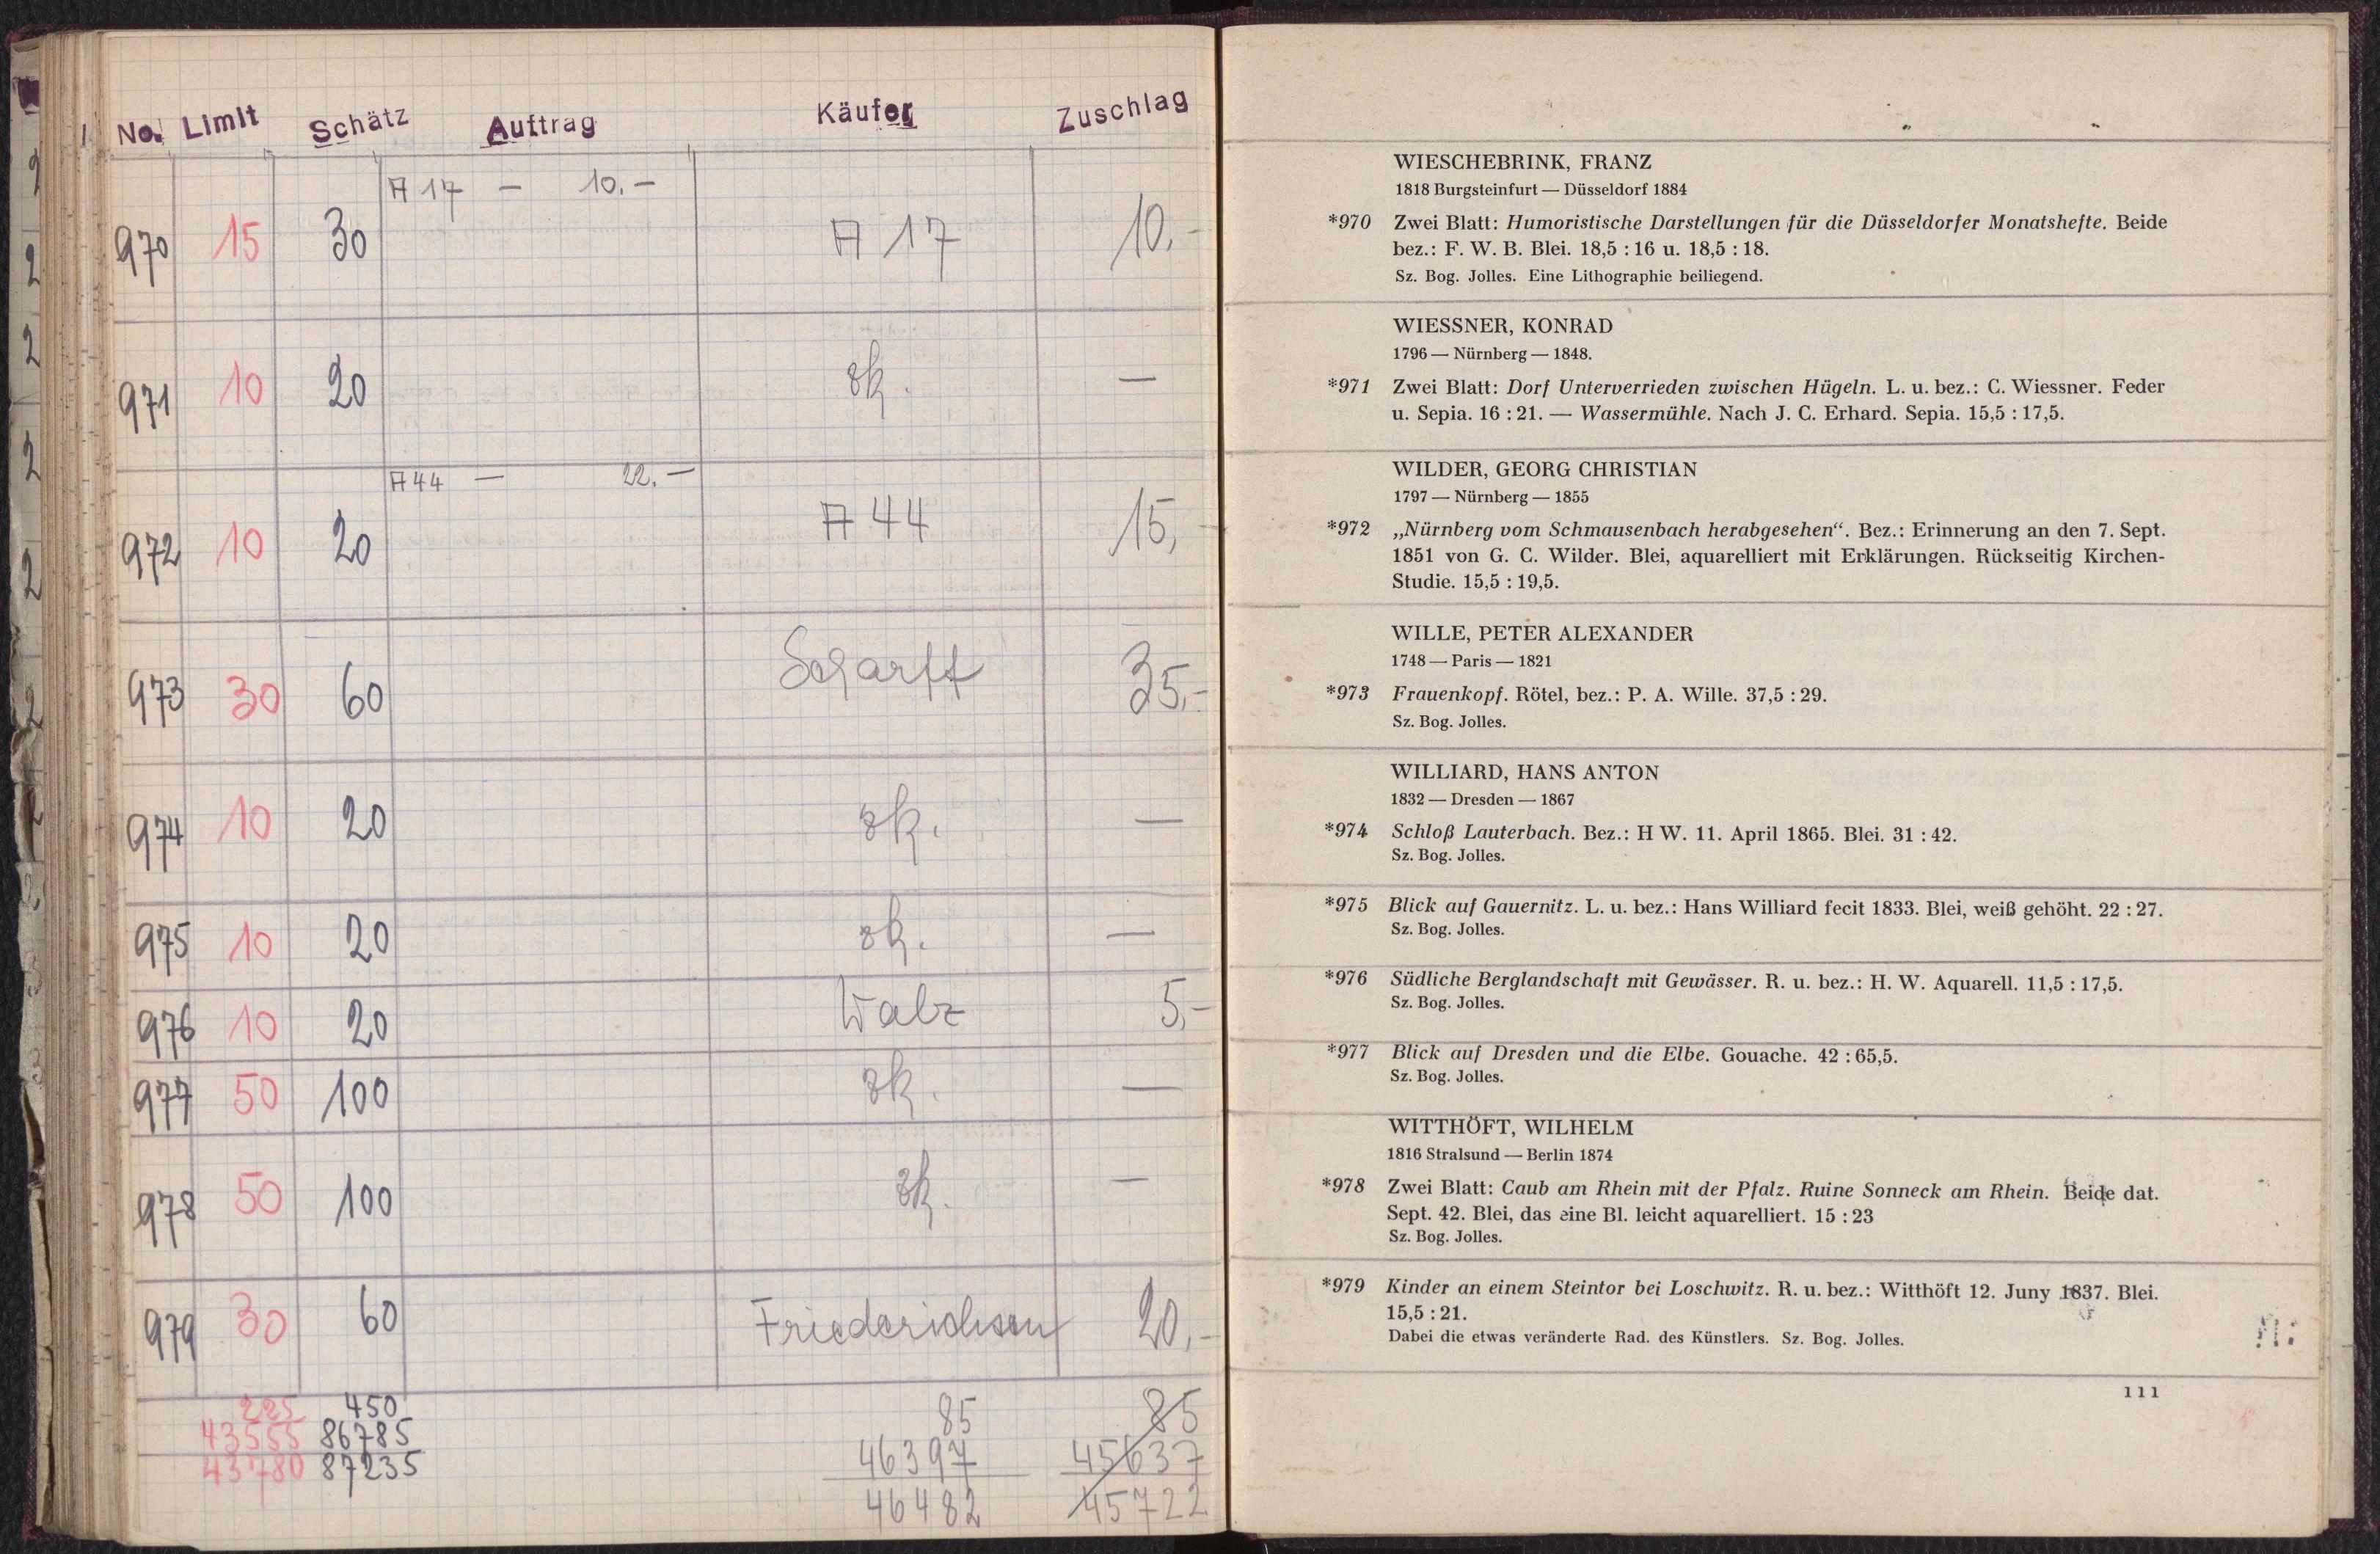 No. Limit Schätz Auftrag Käufer Zuschlag
A 17 — 10.—
970 15 30 A 17 10.-
971 10 20 zk. —
A 44 — 22.—
972 10 20 A 44 15,-
973 30 60 Scharff 35,-
974 10 20 zk. —
975 10 20 zk. —
976 10 20 Walz 5,-
977 50 100 zk. —
978 50 100 zk. —
979 30 60 Friederichsen 20,-
225 450 85 85
43555 86785 46397 45637
43780 87235 46482 45722
WIESCHEBRINK, FRANZ
1818 Burgsteinfurt — Düsseldorf 1884
*970 Zwei Blatt: Humoristische Darstellungen für die Düsseldorfer Monatshefte. Beide
bez.: F. W. B. Blei. 18,5 : 16 u. 18,5 : 18.
Sz. Bog. Jolles. Eine Lithographie beiliegend.
WIESSNER, KONRAD
1796 — Nürnberg — 1848.
*971 Zwei Blatt: Dorf Unterverrieden zwischen Hügeln. L. u. bez.: C. Wiessner. Feder
u. Sepia. 16 : 21. — Wassermühle. Nach J. C. Erhard. Sepia. 15,5 : 17,5.
WILDER, GEORG CHRISTIAN
1797 — Nürnberg — 1855
*972 „Nürnberg vom Schmausenbach herabgesehen“. Bez.: Erinnerung an den 7. Sept.
1851 von G. C. Wilder. Blei, aquarelliert mit Erklärungen. Rückseitig Kirchen-
Studie. 15,5 : 19,5.
WILLE, PETER ALEXANDER
1748 — Paris — 1821
*973 Frauenkopf. Rötel, bez.: P. A. Wille. 37,5 : 29.
Sz. Bog. Jolles.
WILLIARD, HANS ANTON
1832 — Dresden — 1867
*974 Schloß Lauterbach. Bez.: H W. 11. April 1865. Blei. 31 : 42.
Sz. Bog. Jolles.
*975 Blick auf Gauernitz. L. u. bez.: Hans Williard fecit 1833. Blei, weiß gehöht. 22 : 27.
Sz. Bog. Jolles.
*976 Südliche Berglandschaft mit Gewässer. R. u. bez.: H. W. Aquarell. 11,5 : 17,5.
Sz. Bog. Jolles.
*977 Blick auf Dresden und die Elbe. Gouache. 42 : 65,5.
Sz. Bog. Jolles.
WITTHÖFT, WILHELM
1816 Stralsund — Berlin 1874
*978 Zwei Blatt: Caub am Rhein mit der Pfalz. Ruine Sonneck am Rhein. Beide dat.
Sept. 42. Blei, das eine Bl. leicht aquarelliert. 15 : 23
Sz. Bog. Jolles.
*979 Kinder an einem Steintor bei Loschwitz. R. u. bez.: Witthöft 12. Juny 1837. Blei.
15,5 : 21.
Dabei die etwas veränderte Rad. des Künstlers. Sz. Bog. Jolles.
111